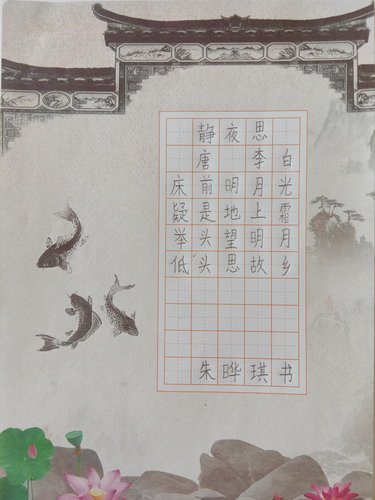 静夜思
唐 李白
床前明月光
疑是地上霜
举头望明月
低头思故乡
朱晔琪书